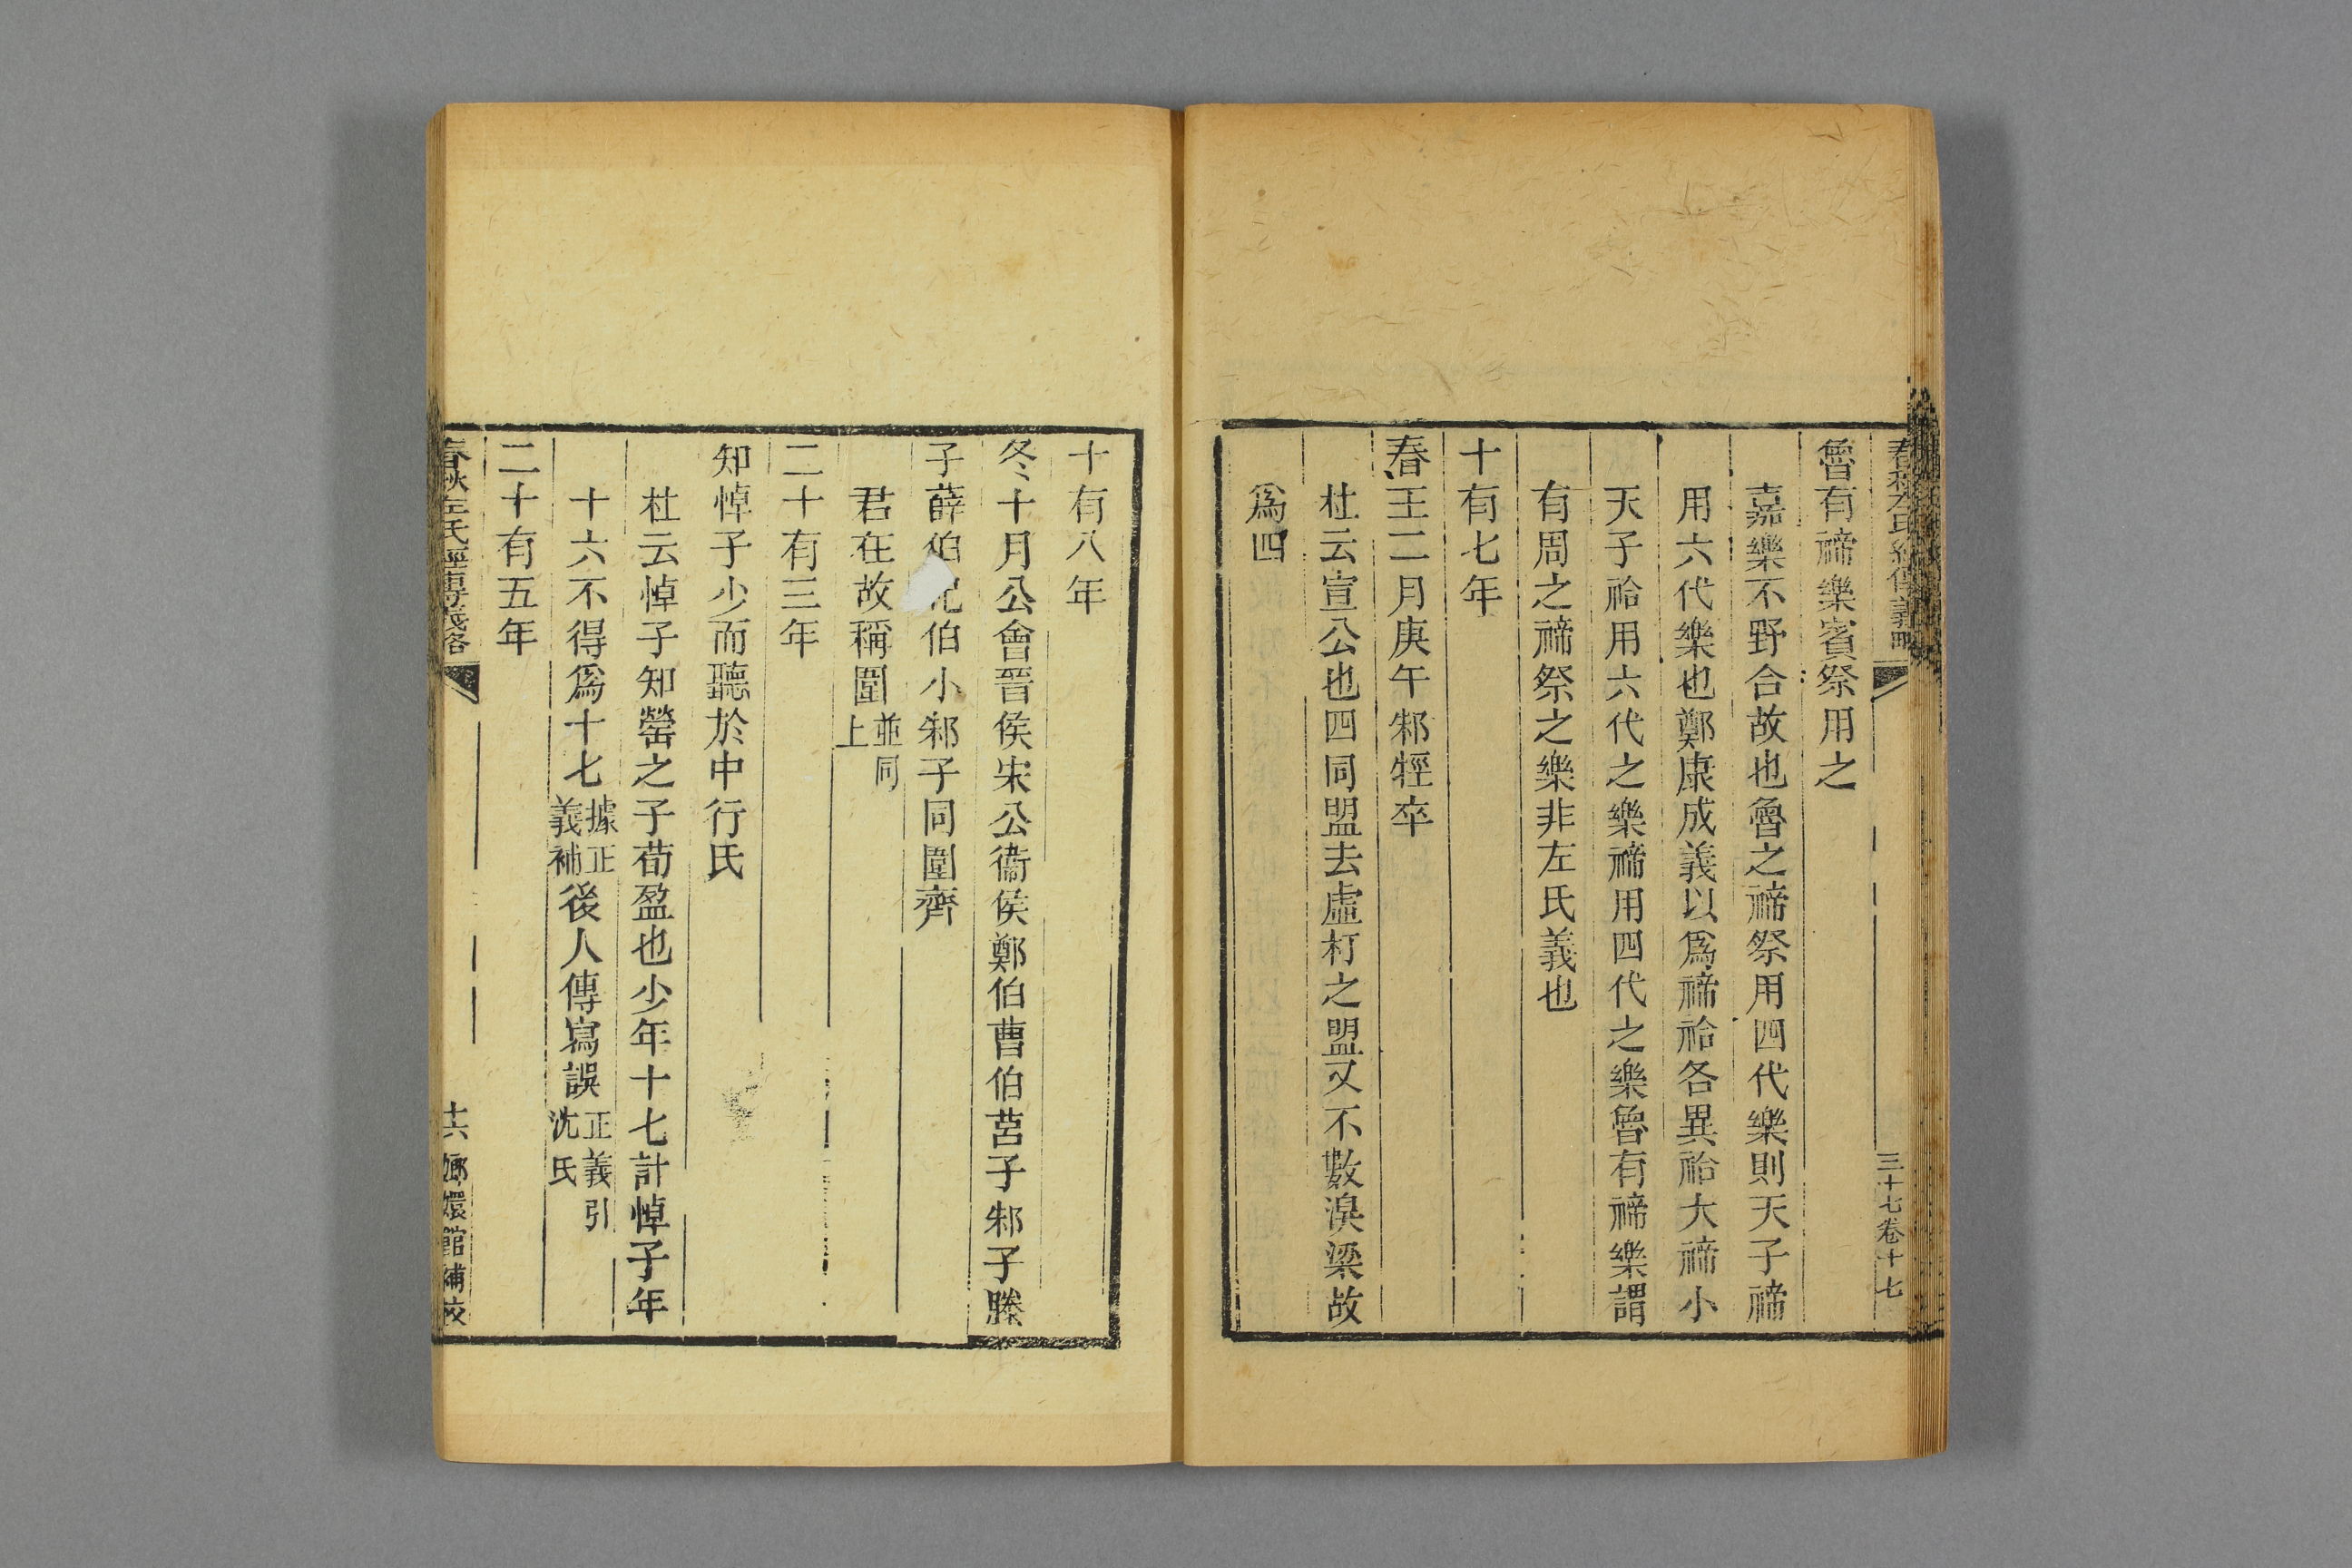 春秋左氏經傳義略
三十七卷十七
魯有禘樂賓祭用之
嘉樂不野合故也魯之禘祭用四代樂則天子禘
用六代樂也鄭康成義以爲禘祫各異祫大禘小
天子祫用六代之樂禘用四代之樂魯有禘樂謂
有周之禘祭之樂非左氏義也
十有七年
春王二月庚午邾牼卒
杜云宣公也四同盟去虛朾之盟又不數湨梁故
爲四
十有八年
冬十月公會晉侯宋公衞侯鄭伯曹伯莒子邾子滕
子薛伯杞伯小邾子同圍齊
君在故稱圍並同上
二十有三年
知悼子少而聽於中行氏
杜云悼子知罃之子荀盈也少年十七計悼子年
十六不得爲十七據正義補後人傳寫誤正義引沈氏
二十有五年
春秋左氏經傳義略
十六
嫏嬛館補校